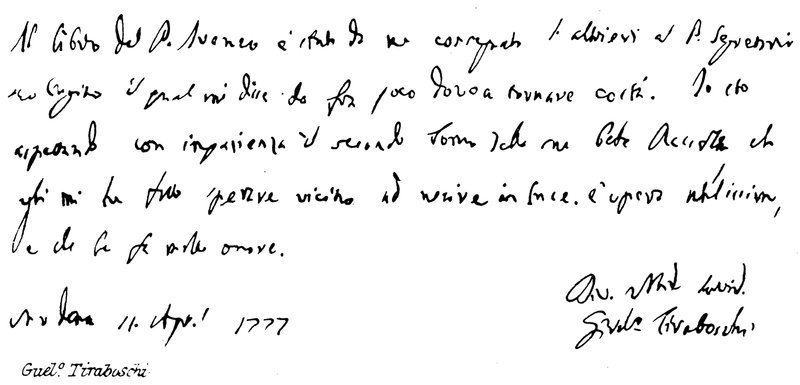 Il libro del P. è stato da me consegnato l'altrieri al P.
suo Cugino il qual mi disse da fra poco dovea tornare costà. Io sto
aspettando con impazienza il secondo Tomo della sua che
egli mi ha fatto sperare vicino ad uscire in luce. è opera utilissima,
e che le fa molto onore.
Modena 11. Apr. 1777
Div. Obbl. Servid.
Girol.º Tiraboschi
Guel.º Tiraboschi